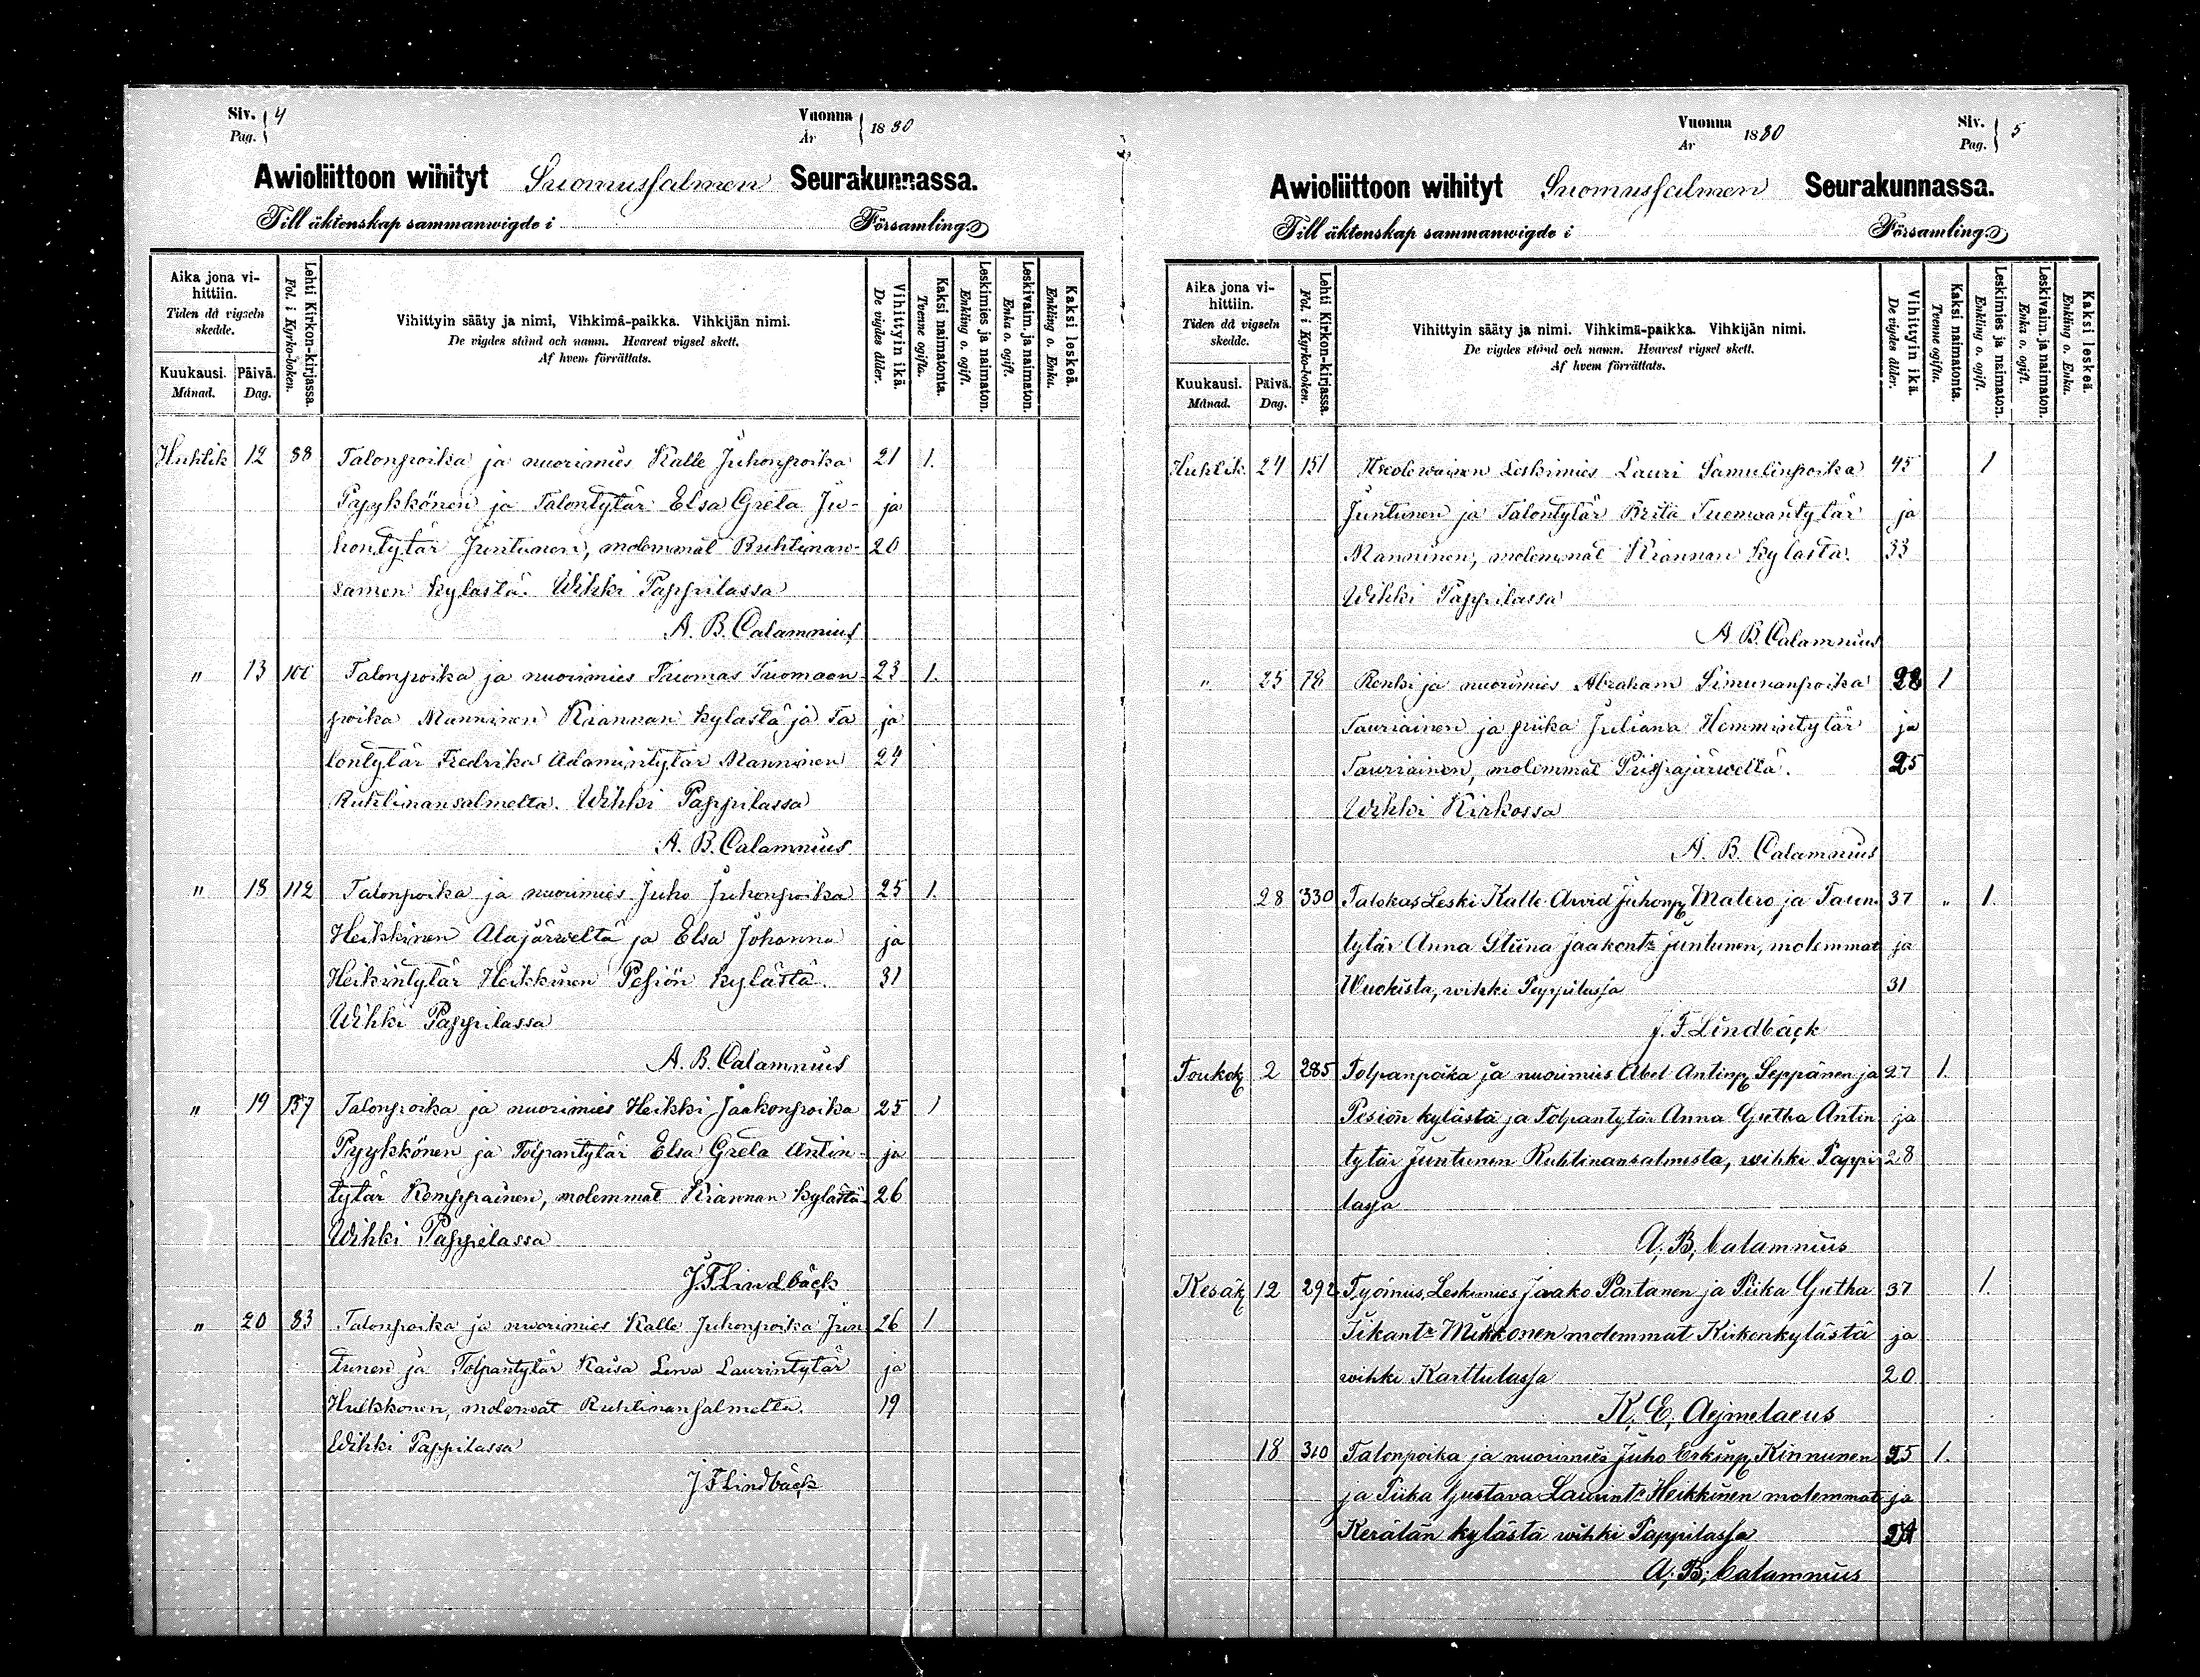 Siv. 4
Pag.
Vuonna 1880
År
Awioliittoon wihityt Suomussalmen Seurakunnassa.
Till äktenskap sammanwigde i Församling.
Aika jona vihittiin.
Tiden då vigseln skedde.
Kuukausi. Månad.
Päivä. Dag.
Lehti Kirkon-kirjassa.
Fol. i Kyrko-boken.
Vihittyin sääty ja nimi, Vihkimä-paikka. Vihkijän nimi.
De vigdes stånd och namn. Hvarest vigsel skett.
Af hvem förrättats.
Vihittyin ikä.
De vigdes ålder.
Kaksi naimatonta.
Tvenne ogifta.
Leskimies ja naimaton.
Enkling o. ogift.
Leskivaim. ja naimaton.
Enka o. ogift.
Kaksi leskeä.
Enkling o. Enka.
Huhtik 12 88 Talonpoika ja nuorimies Kalle Juhonpoika 21 1.
Pyykkönen ja Talontytär Elsa Greta Ju- ja
hontytär Juntunen, molemmat Ruhtinan- 20
samen kylästä. Wihki Pappilassa
A. B. Calamnius
" 13 Talonpoika ja nuorimies Tuomas Tuomaan 23 1.
poika Manninen Kiannan kylästä ja Ta ja
lontytär Fredrika Adamintytär Manninen 24
Ruhtinansalmelta. Wihki Pappilassa
A. B. Calamnius
" 18 112 Talonpoika ja nuorimies Juho Juhonpoika 25 1.
Heikkinen Alajärweltä ja Elsa Johanna ja
Heikintytär Heikkinen Pesiön kylästä. 31
Wihki Pappilassa
A. B. Calamnius
" 19 157 Talonpoika ja nuorimies Heikki Jaakonpoika 25 1
Pyykkönen ja Tolpantytär Elsa Greta Antin- ja
tytär Kemppainen, molemmat Kiannan kylästä 26
Wihki Pappilassa
J. F. Lindbäck
" 20 83 Talonpoika ja nuorimies Kalle Juhonpoika Jun 26 1
tunen ja Tolpantytär Kaisa Lena Laurintytär ja
Hulkkonen, molemat Ruhtinansalmelta. 19
Wihki Pappilassa
J F Lindbäck
Vuonna 1880
År
Siv. 5
Pag.
Awioliittoon wihityt Suomussalmen Seurakunnassa.
Till äktenskap sammanwigde i Församling.
Aika jona vihittiin.
Tiden då vigseln skedde.
Kuukausi. Månad.
Päivä. Dag.
Lehti Kirkon-kirjassa.
Fol. i Kyrko-boken.
Vihittyin sääty ja nimi. Vihkimä-paikka. Vihkijän nimi.
De vigdes stånd och namn. Hvarest vigsel skett.
Af hvem förrättats.
Vihittyin ikä
De vigdes ålder.
Kaksi naimatonta.
Tvenne ogifta.
Leskimies ja naimaton.
Enkling o. ogift.
Leskivaim. ja naimaton.
Enka o. ogift.
Kaksi leskeä.
Enkling o. Enka.
Huhtik. 24 151 Leskimies Lauri Samulinpoika 45 1
Juntunen ja Talontytär Brita Tuomaantytär ja
Manninen, molemmat Kiannan kylästä. 33
Wihki Pappilassa
A. B. Calamnius
" 25 78 Renki ja nuorimies Abraham Simunanpoika 28 1
Tauriainen ja piika Juliana Hemmintytär ja
Tauriainen, molemmat Pispajärweltä. 25
Wihki Kirkossa
A. B. Calamnius
28 330 Leski Kalle Arvid Juhonp Matero ja 37 " 1.
tytär Anna Stiina Jaakontr Juntunen, molemmat ja
Wuokista, wihki Pappilassa 31
J. F. Lindbäck
Toukok 2 285 Tolpanpoika ja nuorimies Abel Antinp Seppänen ja 27 1.
Pesiön kylästä ja Tolpantytär Anna Gretha Antin ja
tytär Juntunen Ruhtinansalmesta, wihki Pappi 28
lassa
A. B. Calamnius
Kesäk 12 292 Työmies, Leskimies Jaako Partanen ja Piika Gretha 37 1.
Iikantr Mikkonen molemmat Kirkonkylästä ja
wihki Karttulassa 20
K. E. Aejmelaeus
18 310 Talonpoika ja nuorimies Juho Erkinp Kinnunen 25 1.
ja Piika Gustava Laurintr Heikkinen molemmat ja
Kerälän kylästä wihki Pappilassa
A. B. Calamnius